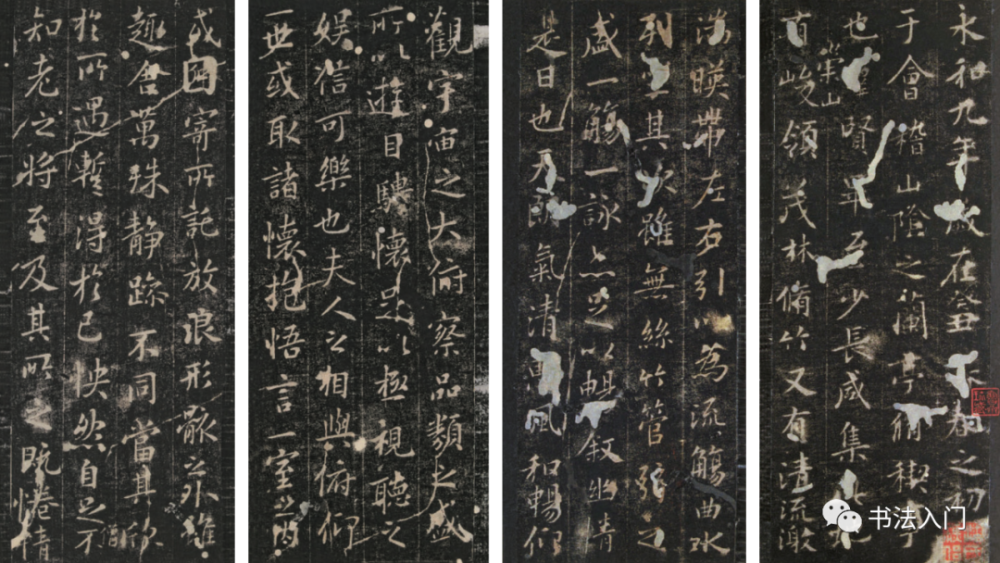 永和九年歲在癸丑暮春之初
于會稽山陰之蘭亭脩禊事
也賢畢至少長咸集此地
有崇山峻領茂林脩竹又有清流激
湍暎帶左右引以為流觴曲水
列坐其次雖無絲竹管弦之
盛一觴一詠亦足以暢敘幽情
是日也天朗氣清惠風和暢仰
觀宇宙之大俯察品類之盛
所以遊目騁懷足以極視聽之
娛信可樂也夫人之相與俯仰
一世或取諸懷抱悟言一室之內
或因寄所託放浪形骸之外雖
趣舍萬殊靜躁不同當其欣
於所遇暫得於己怏然自足不
知老之將至及其所之既惓情
书法入门